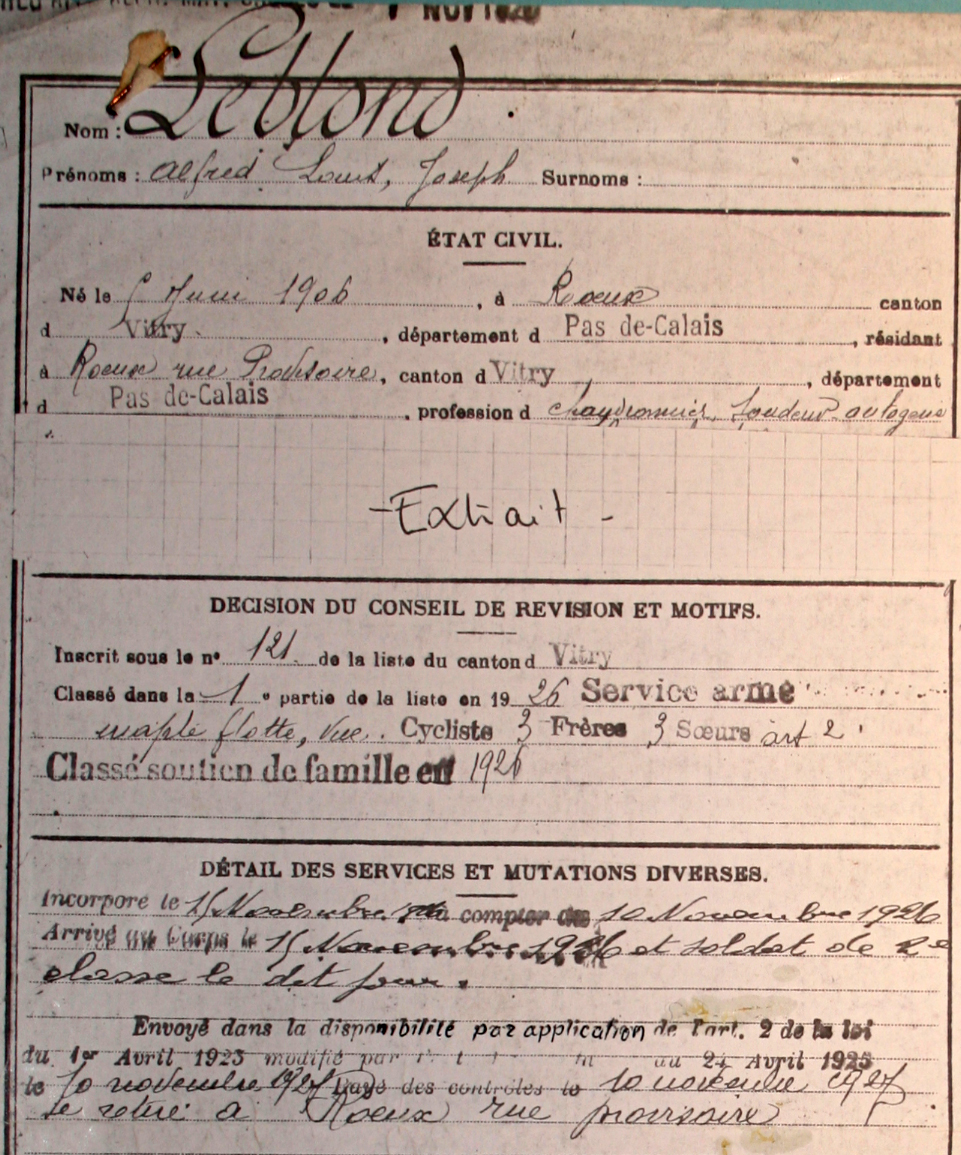 NOV 1926
Nom : Leblond
Prénoms : Alfred Louis, Joseph Surnoms :
ÉTAT CIVIL.
Né le 6 Juin 1906, à Roeux canton
d Vitry, département d Pas de-Calais, résidant
à Roeux rue Provisoire, canton d Vitry, département
d Pas de-Calais, profession d chaudronnier, soudeur autogène
- Extrait -
DECISION DU CONSEIL DE REVISION ET MOTIFS.
Inscrit sous le n° 121 de la liste du canton d Vitry
Classé dans la 1e partie de la liste en 1926 Service armé
flotte, vue. Cycliste 3 Frères 3 Sœurs art 2
Classé soutien de famille en 1926
DÉTAIL DES SERVICES ET MUTATIONS DIVERSES.
Incorporé le 15 Novembre à compter du 10 Novembre 1926
Arrivé au Corps le 15 Novembre 1926 et soldat de 2e
classe le dit jour.
Envoyé dans la disponibilité par application de l'art. 2 de la loi
du 1er Avril 1923 modifié par au 24 Avril 1925
le 10 novembre 1927 Rayé des contrôles le 10 novembre 1927
se retire à Roeux rue provisoire